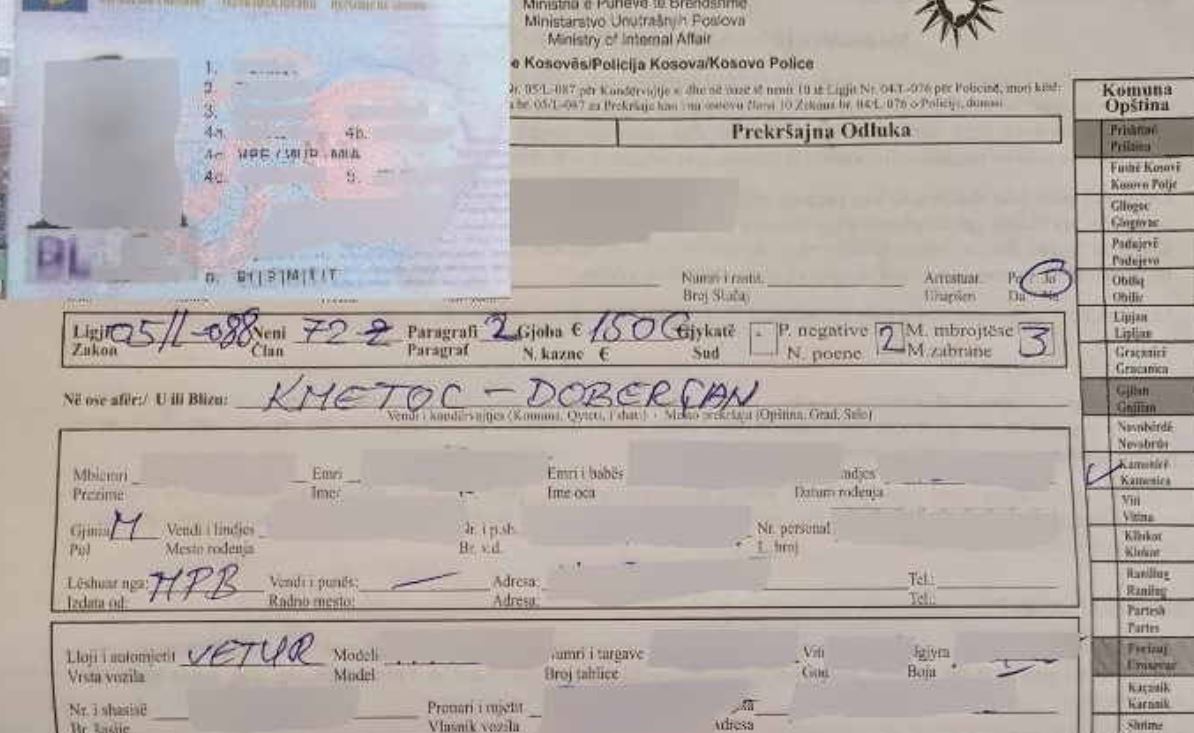 Ministria e Punëve të Brendshme
Ministarstvo Unutrašnjih Poslova
Ministry of Internal Affair
e Kosovës/Policija Kosova/Kosovo Police
Nr. 05/L-087 për Kundërvajtje e dhe në bazë të nenit 10 të Ligjit Nr. 04/L-076 për Policinë, mori këtë:
br. 05/L-087 za Prekršaje kao i na osnovu člana 10 Zakona br. 04/L-076 o Policiji, donosi
Prekršajna Odluka
1.
2.
3.
4a. 4b.
4c. MPB / MUP MIA
4d. 5.
PL
9. B1
Arrestuar Po Jo
Uhapšen Da Ne
Broj Slučaj
Ligji 05/L-088 Neni 72 2 Paragrafi 2 Gjoba € 150 € Gjykatë P. negative 2 M. mbrojtëse 3
Zakon Član Paragraf N. kazne € Sud N. poene M. zabrane
Në ose afër:/ U ili Blizu: KMETOC - DOBERÇAN
Vendi i kundërvajtjes (Komuna, Qyteti, Fshati) - Mesto prekršaja (Opština, Grad, Selo)
Mbiemri Emri Emri i babës
Prezime Ime Ime oca Datum rođenja
Gjinia M Vendi i lindjes Nr. personal
Pol Mesto rođenja Br. v.d. L. broj
Lëshuar nga: MPB Vendi i punës: Adresa: Tel.:
Izdata od: Radno mesto: Adresa: Tel.:
Lloji i automjetit VETUR Modeli Numri i targave Viti Ngjyra
Vrsta vozila Model Broj tablice God Boja
Nr. i shasisë Pronari i mjetit
Br. šasije Vlasnik vozila Adresa
Komuna
Opština
Prishtinë
Priština
Fushë Kosovë
Kosovo Polje
Gllogoc
Glogovac
Podujevë
Podujevo
Obiliq
Obilić
Lipjan
Lipljan
Graçanicë
Gračanica
Gjilan
Gnjilan
Novobërdë
Novobrdo
Kamenicë
Kamenica
Viti
Vitina
Kllokot
Klokot
Ranillug
Ranilug
Partesh
Parteš
Ferizaj
Uroševac
Kaçanik
Kačanik
Shtime